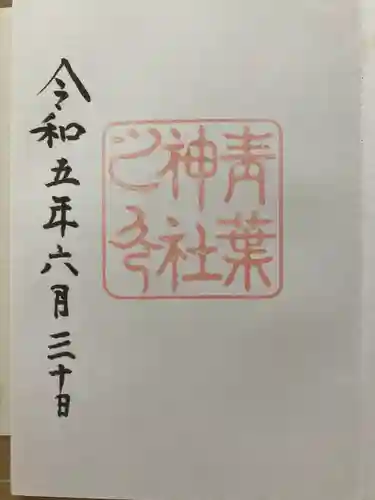 青葉
神社
之印
令和五年六月三十日